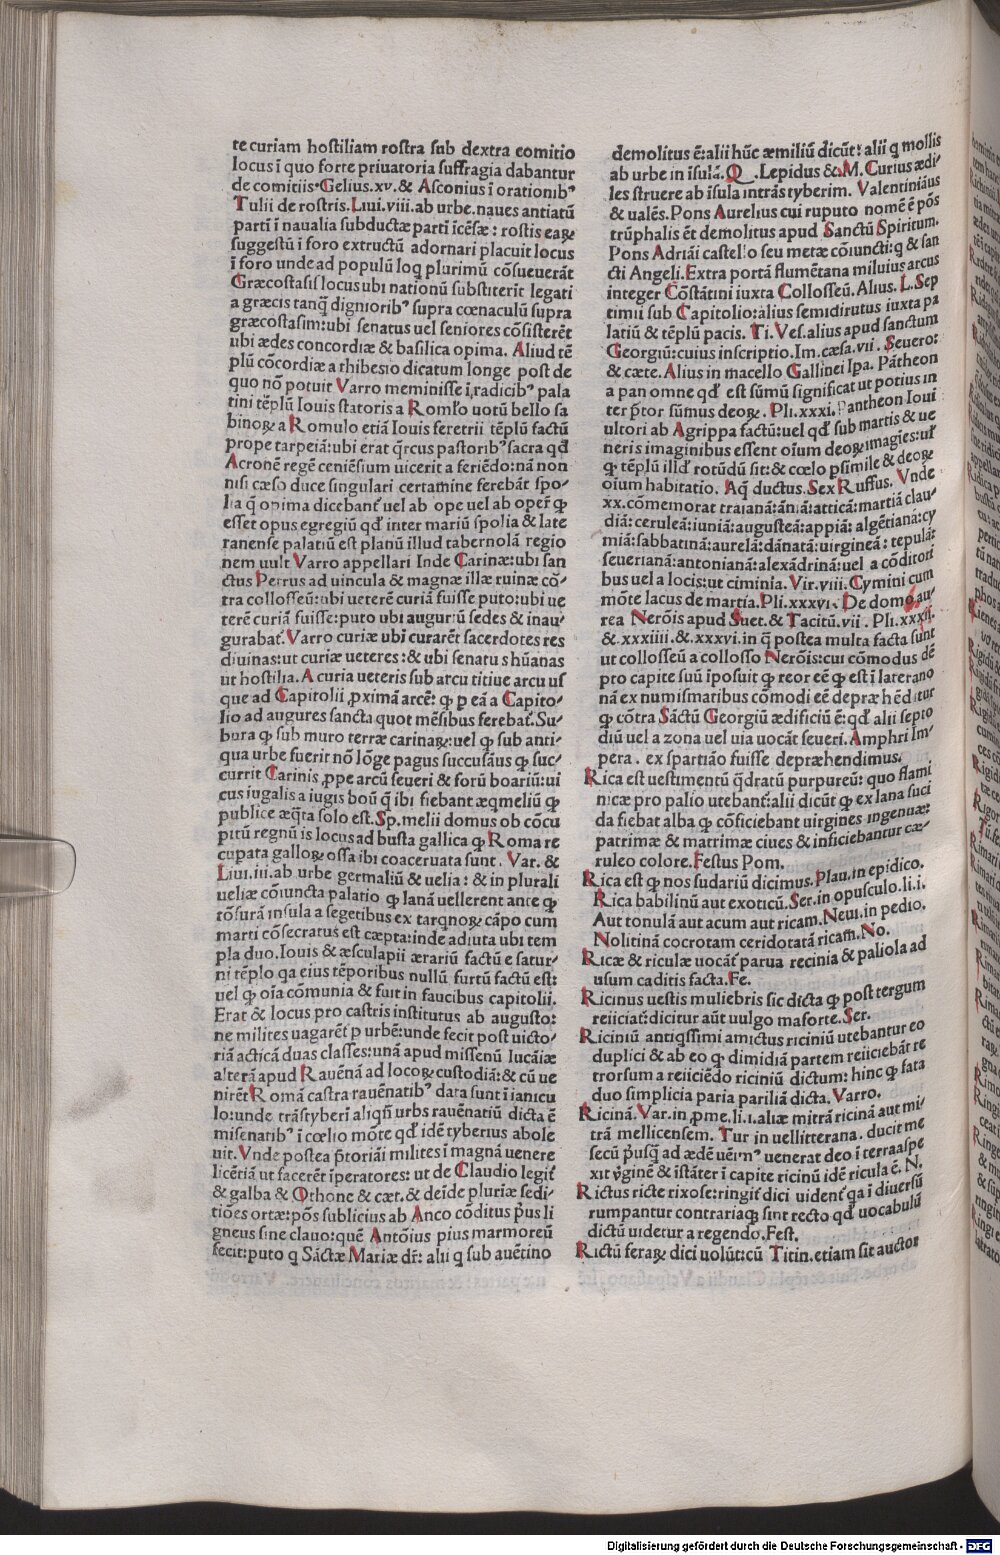 te curiam hostiliam rostra sub dextra comitio
locus ī quo forte priuatoria suffragia dabantur
de comitiis. Gelius. xv. & Asconius ī orationibꝰ
Tulii de rostris. Liui. viii. ab urbe. naues antiatū
parti ī naualia subductæ parti icēsæ: rostis eaꝝ
suggestū ī foro extructū adornari placuit locus
ī foro unde ad populū loq plurimū cōsueuerāt
Græcostasis locus ubi nationū substiterit legati
a græcis tanq̄ dignioribꝰ supra cœnaculū supra
græcostasim: ubi senatus uel seniores cōsisterēt
ubi ædes concordiæ & basilica opima. Aliud tē
plū cōcordiæ a rhibesio dicatum longe post de
quo nō potuit Varro meminisse i, radicibꝰ pala
tini tēplū Iouis statoris a Romło uotū bello sa
binoꝝ a Romulo etiā Iouis feretrii tēplū factū
prope tarpeiā: ubi erat q̄rcus pastoribꝰ sacra qđ
Acronē regē ceniēsium uicerit a feriēdo: nā non
nisi cæso duce singulari certamine ferebāt spo/
lia q̄ opima dicebant uel ab ope uel ab oper̄ ꝙ
esset opus egregiū qđ inter mariū spolia & late
ranense palatiū est planū illud tabernolā regio
nem uult Varro appellari Inde Carinæ: ubi san
ctus Petrus ad uincula & magnæ illæ ruinæ cō/
tra collosseū: ubi ueterē curiā fuisse puto: ubi ue
terē curiā fuisse: puto ubi augurū sedes & inau/
gurabat. Varro curiæ ubi curarēt sacerdotes res
diuinas: ut curiæ ueteres: & ubi senatus hūanas
ut hostilia. A curia ueteris sub arcu titiue arcu us
que ad Capitolii ꝓximā arcē: ꝙ ꝑ eā a Capito/
lio ad augures sancta quot mēsibus ferebat. Su/
bura ꝙ sub muro terræ carinaꝝ: uel ꝙ sub anti/
qua urbe fuerit nō lōge pagus succusāus ꝙ suc/
currit Carinis ꝓpe arcū seueri & forū boariū: ui
cus iugalis a iugis boū q̄ ibi fiebant æqmeliū ꝙ
publice æq̄ta solo est. Sp. melii domus ob cōcu
pitū regnū is locus ad busta gallica ꝙ Roma re
cupata galloꝝ ossa ibi coaceruata sunt. Var. &
Liui. iii. ab urbe germaliū & uelia: & in plurali
ueliæ cōiuncta palatio ꝙ lanā uellerent ante ꝙ
tōsurā insula a segetibus ex tarqnoꝝ cāpo cum
marti cōsecratus est cæpta: inde adiuta ubi tem
pla duo. Iouis & æsculapii ærariū factū e satur/
ni tēplo qa eius tēporibus nullū furtū factū est:
uel ꝙ oīa cōmunia & fuit in faucibus capitolii.
Erat & locus pro castris institutus ab augusto:
ne milites uagarēt ꝑ urbē: unde fecit post uicto/
riā acticā duas classes: unā apud missenū lucāiæ
alterā apud Rauēnā ad locoꝝ custodiā: & cū ue
nirēt Romā castra rauēnatibꝰ data sunt ī ianicu
lo: unde trāstyberī aliqn̄ urbs rauēnatiū dicta ē
misenatibꝰ ī cœlio mōte qđ idē tyberius abole
uit. Vnde postea p̄toriāi milites ī magnā uenere
licētiā ut facerēt īperatores: ut de Claudio legit̄
& galba & Othone & cæt. & deīde pluriæ sedi/
tiōes ortæ: pōs sublicius ab Anco cōditus p̄us li
gneus sine clauo: quē Antōius pius marmoreū
fecit: puto q Sāctæ Mariæ dr̄: alii q sub auētino
demolitus ē: alii hūc æmiliū dicūt: alii q mollis
ab urbe in īsulā. Q. Lepidus & M. Curius ædi/
les struere ab īsula intrās tyberim. Valentiniāus
& ualēs. Pons Aurelius cui ruputo nomē ē pōs
trūphalis ēt demolitus apud Sanctū Spiritum.
Pons Adriāi castello seu metæ cōiuncti: q & san
cti Angeli. Extra portā flumētana miluius arcus
integer Cōstātini iuxta Collosseū. Alius. L. Sep
timii sub Capitolio: alius semidirutus iuxta pa
latiū & tēplū pacis. Ti. Ves. alius apud sanctum
Georgiū: cuius inscriptio. Im. cæsa. vii. Seuero:
& cæte. Alius in macello Gallinei Ipa. Pātheon
a pan omne qđ est sūmū significat ut potius in
ter p̄tor sūmus deoꝝ. Pli. xxxi. Pantheon Ioui
ultori ab Agrippa factū: uel qđ sub martis & ue
neris imaginibus essent oīum deoꝝ imagies: ul̄
ꝙ tēplū illđ rotūdū sit: & cœlo psimile & deoꝝ
oīum habitatio. Aq̄ ductus. Sex Ruffus. Vnde
xx. cōmemorat traianā: āniā: atticā: martiā clau/
diā: ceruleā: iuniā: augusteā: appiā: algētianā: cy
miā: sabbatinā: aurelā: dānatā: uirgineā: tepulā:
seuerianā: antonianā: alexādrinā: uel a cōditori
bus uel a locis: ut ciminia. Vir. viii. Cymini cum
mōte lacus de martia. Pli. xxxvi. De domo au/
rea Nerōis apud Suet. & Tacitū. vii. Pli. xxxii.
& xxxiiii. & xxxvi. in q̄ postea multa facta sunt
ut collosseū a collosso Nerōis: cui cōmodus dē
pro capite suū īposuit ꝙ reor eē ꝙ est ī laterano
nā ex numismatibus cōmodi eē depræhēditur
ꝙ cōtra Sāctū Georgiū ædificiū ē: qđ alii septo
diū uel a zona uel uia uocāt seueri. Amphri Im/
pera. ex spartiāo fuisse depræhendimus.
Rica est uestimentū q̄dratū purpureū: quo flami
nicæ pro palio utebant: alii dicūt ꝙ ex lana suci
da fiebat alba ꝙ cōficiebant uirgines ingenuæ:
patrimæ & matrimæ ciues & inficiebantur cæ/
ruleo colore. Festus Pom.
Rica est ꝙ nos sudariū dicimus. Plau. in epidico.
Rica babilinū aut exoticū. Ser. in opusculo. li. i.
Aut tonulā aut acum aut ricam. Neui. in pedio.
Nolitinā cocrotam ceridotatā ricam. No.
Ricæ & riculæ uocāt parua recinia & paliola ad
usum caditis facta. Fe.
Ricinus uestis muliebris sic dicta ꝙ post tergum
reiiciat: dicitur aūt uulgo maforte. Ser.
Riciniū antiqssimi amictus riciniū utebantur eo
duplici & ab eo ꝙ dimidiā partem reiiciebāt re
trorsum a reiiciēdo riciniū dictum: hinc ꝙ fata
duo simplicia paria pariliā dicta. Varro.
Ricinā. Var. in ꝓme. li. i. aliæ mitrā ricinā aut mi/
trā mellicensem. Tur in uellitterana. ducit me
secū p̄usq̄ ad ædē uēimꝰ uenerat deo ī terra aspe
xit v̄ginē & īstāter ī capite ricinū idē ricula ē. N.
Rictus ricte rixose: ringit̄ dici uident̄ qa ī diuersū
rumpantur contrariaꝙ sint recto qđ uocabulū
dictū uidetur a regendo. Fest.
Rictū feraꝝ dici uolūt: cū Titin. etiam sit auctor
Digitalisierung gefördert durch die Deutsche Forschungsgemeinschaft - DFG